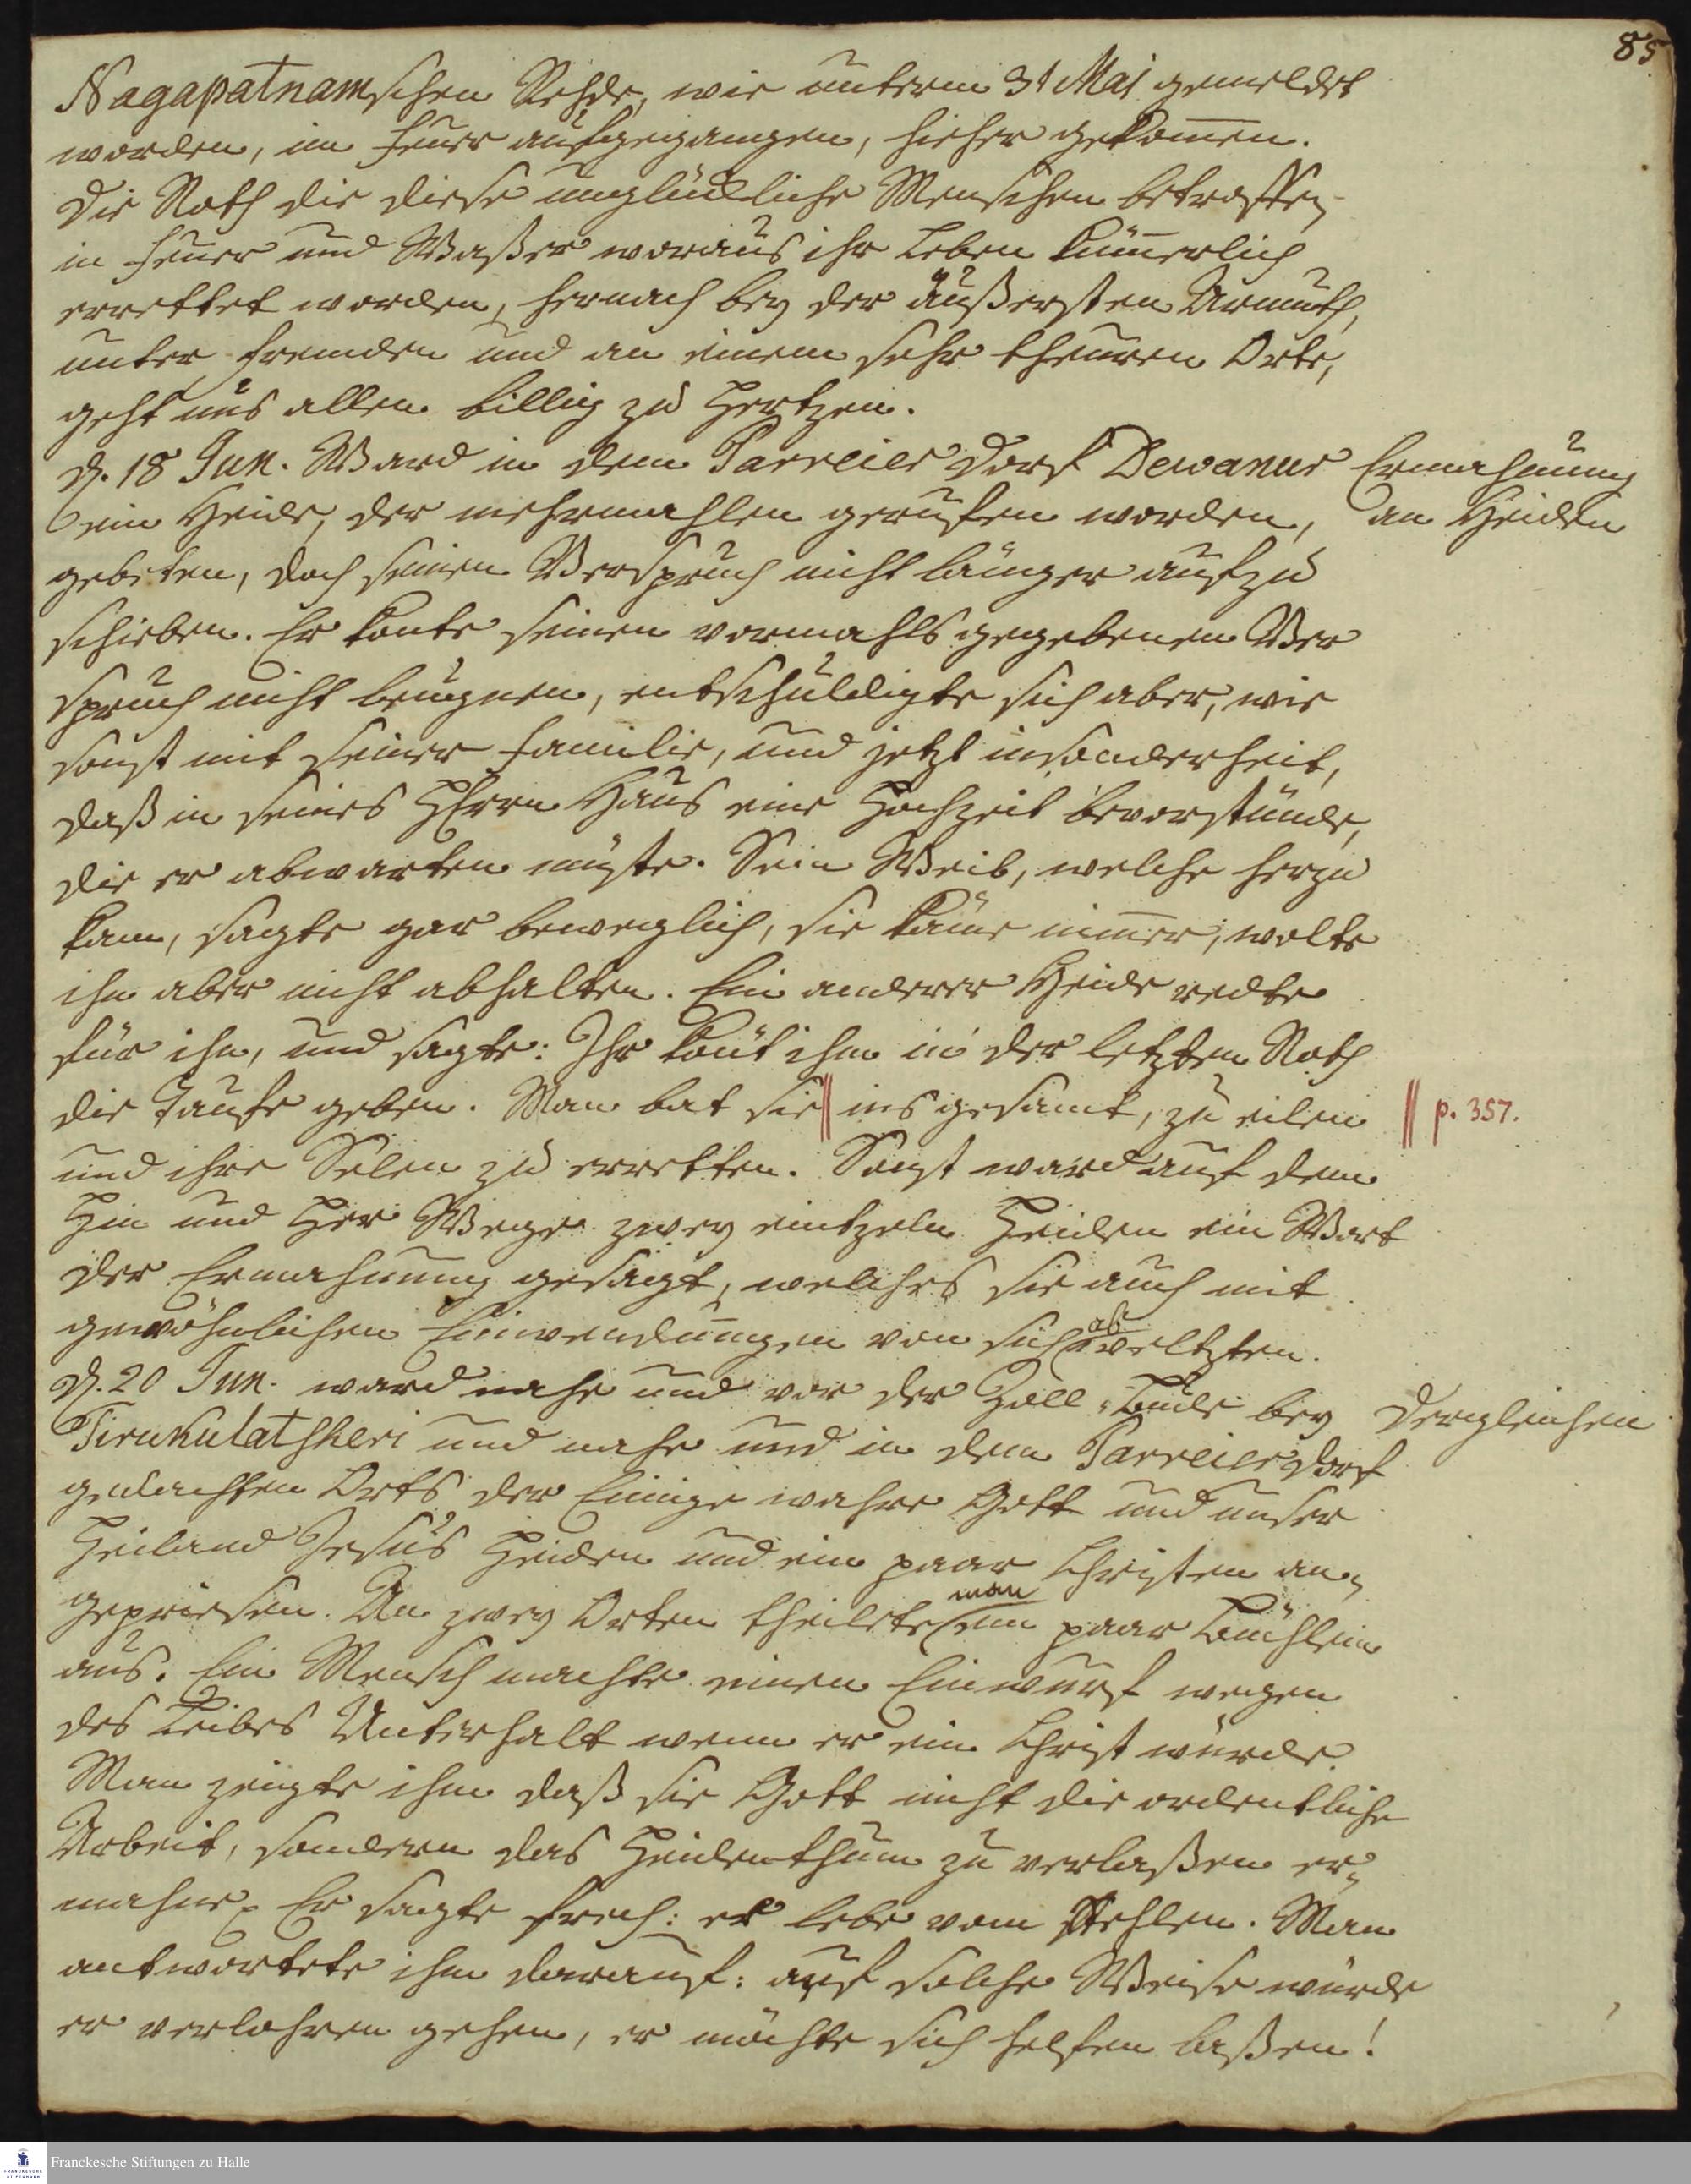 85
Nagapatnamschen Rehde, wie unterm 31 Maj gemeldet
worden, im Feuer aufgegangen, hieher gekom̄en.
Die Noth die diese unglückliche Menschen betroffen,
in Feuer und Waßer woraus ihr Leben küm̄erlich
errettet worden, hernach bey der äußersten Armuth,
unter Fremden und an einem sehr theuren Orte,
geht uns allen billig zu Hertzen.
D. 18 Jun. Ward in dem Parreier Dorf Dewanur
Ermahnung
an Heiden
ein Heide, der mehrmahlen gerufen worden,
gebeten, doch seinen Verspruch nicht länger aufzu
schieben. Er konte seinen vormahls gegebenen Ver
spruch nicht leugnen, entschuldigte sich aber, wie
sonst mit seiner Familie, und jetzt insonderheit,
daß in seines Herrn Haus eine Hochzeit bevorstünde,
die er abwarten müste. Sein Weib, welche herzu
kam, sagte gar beweglich, sie käme im̄er, wolte
ihn aber nicht abhalten. Ein anderer Heide redte
für ihn, und sagte: Ihr könt ihm in der letzten Noth
die Taufe geben. Man bat sie || ins gesamt, zu eilen
|| p. 357.
und ihre Selen zu erretten. Sonst ward auf dem
Hin und Her Wege zwey eintzeln Heiden ein Wort
der Ermahnung gesagt, welches sie auch mit
gewöhnlichen Einwendungen von sich ab weltzten.
D. 20 Jun. ward nahe und vor der Zoll-Bude bey
Dergleichen
Tirukulatsheri und nahe und in dem Parreierdorf
gedachten Orts der Einige wahre Gott und unser
Heiland Jesus Heiden und ein paar Christen an,
gepriesen. An zwey Orten theilete man ein paar Büchlein
aus. Ein Mensch machte einen Einwurf wegen
des Leibes Unterhalt wenn er ein Christ würde.
Man zeigte ihm daß sie Gott nicht die ordentliche
Arbeit, sondern das Heidenthum zu verlaßen er,
mahne. Er sagte frech: er lebe vom Stehlen. Man
antwortete ihm darauf: auf solche Weise würde
er verlohren gehen, er möchte sich helfen laßen!
Franckesche Stiftungen zu Halle